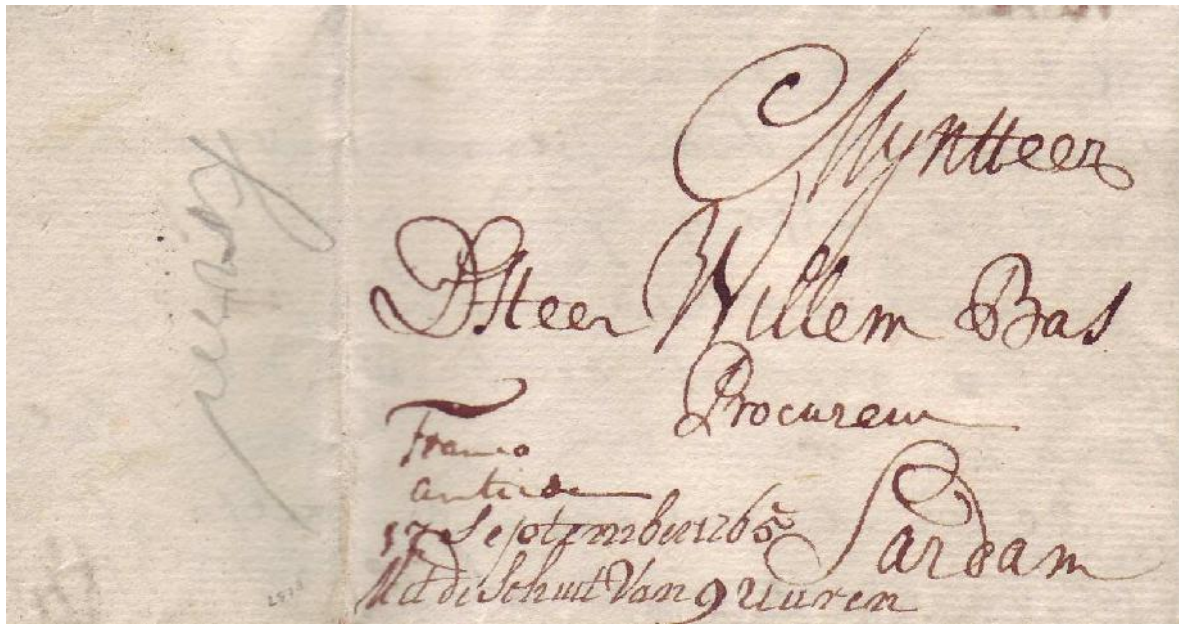 Mynheer
D'Heer Willem Bas
Procureur
Franco
17 September 1765
Sardam
Met de Schuit Van 9 Uuren